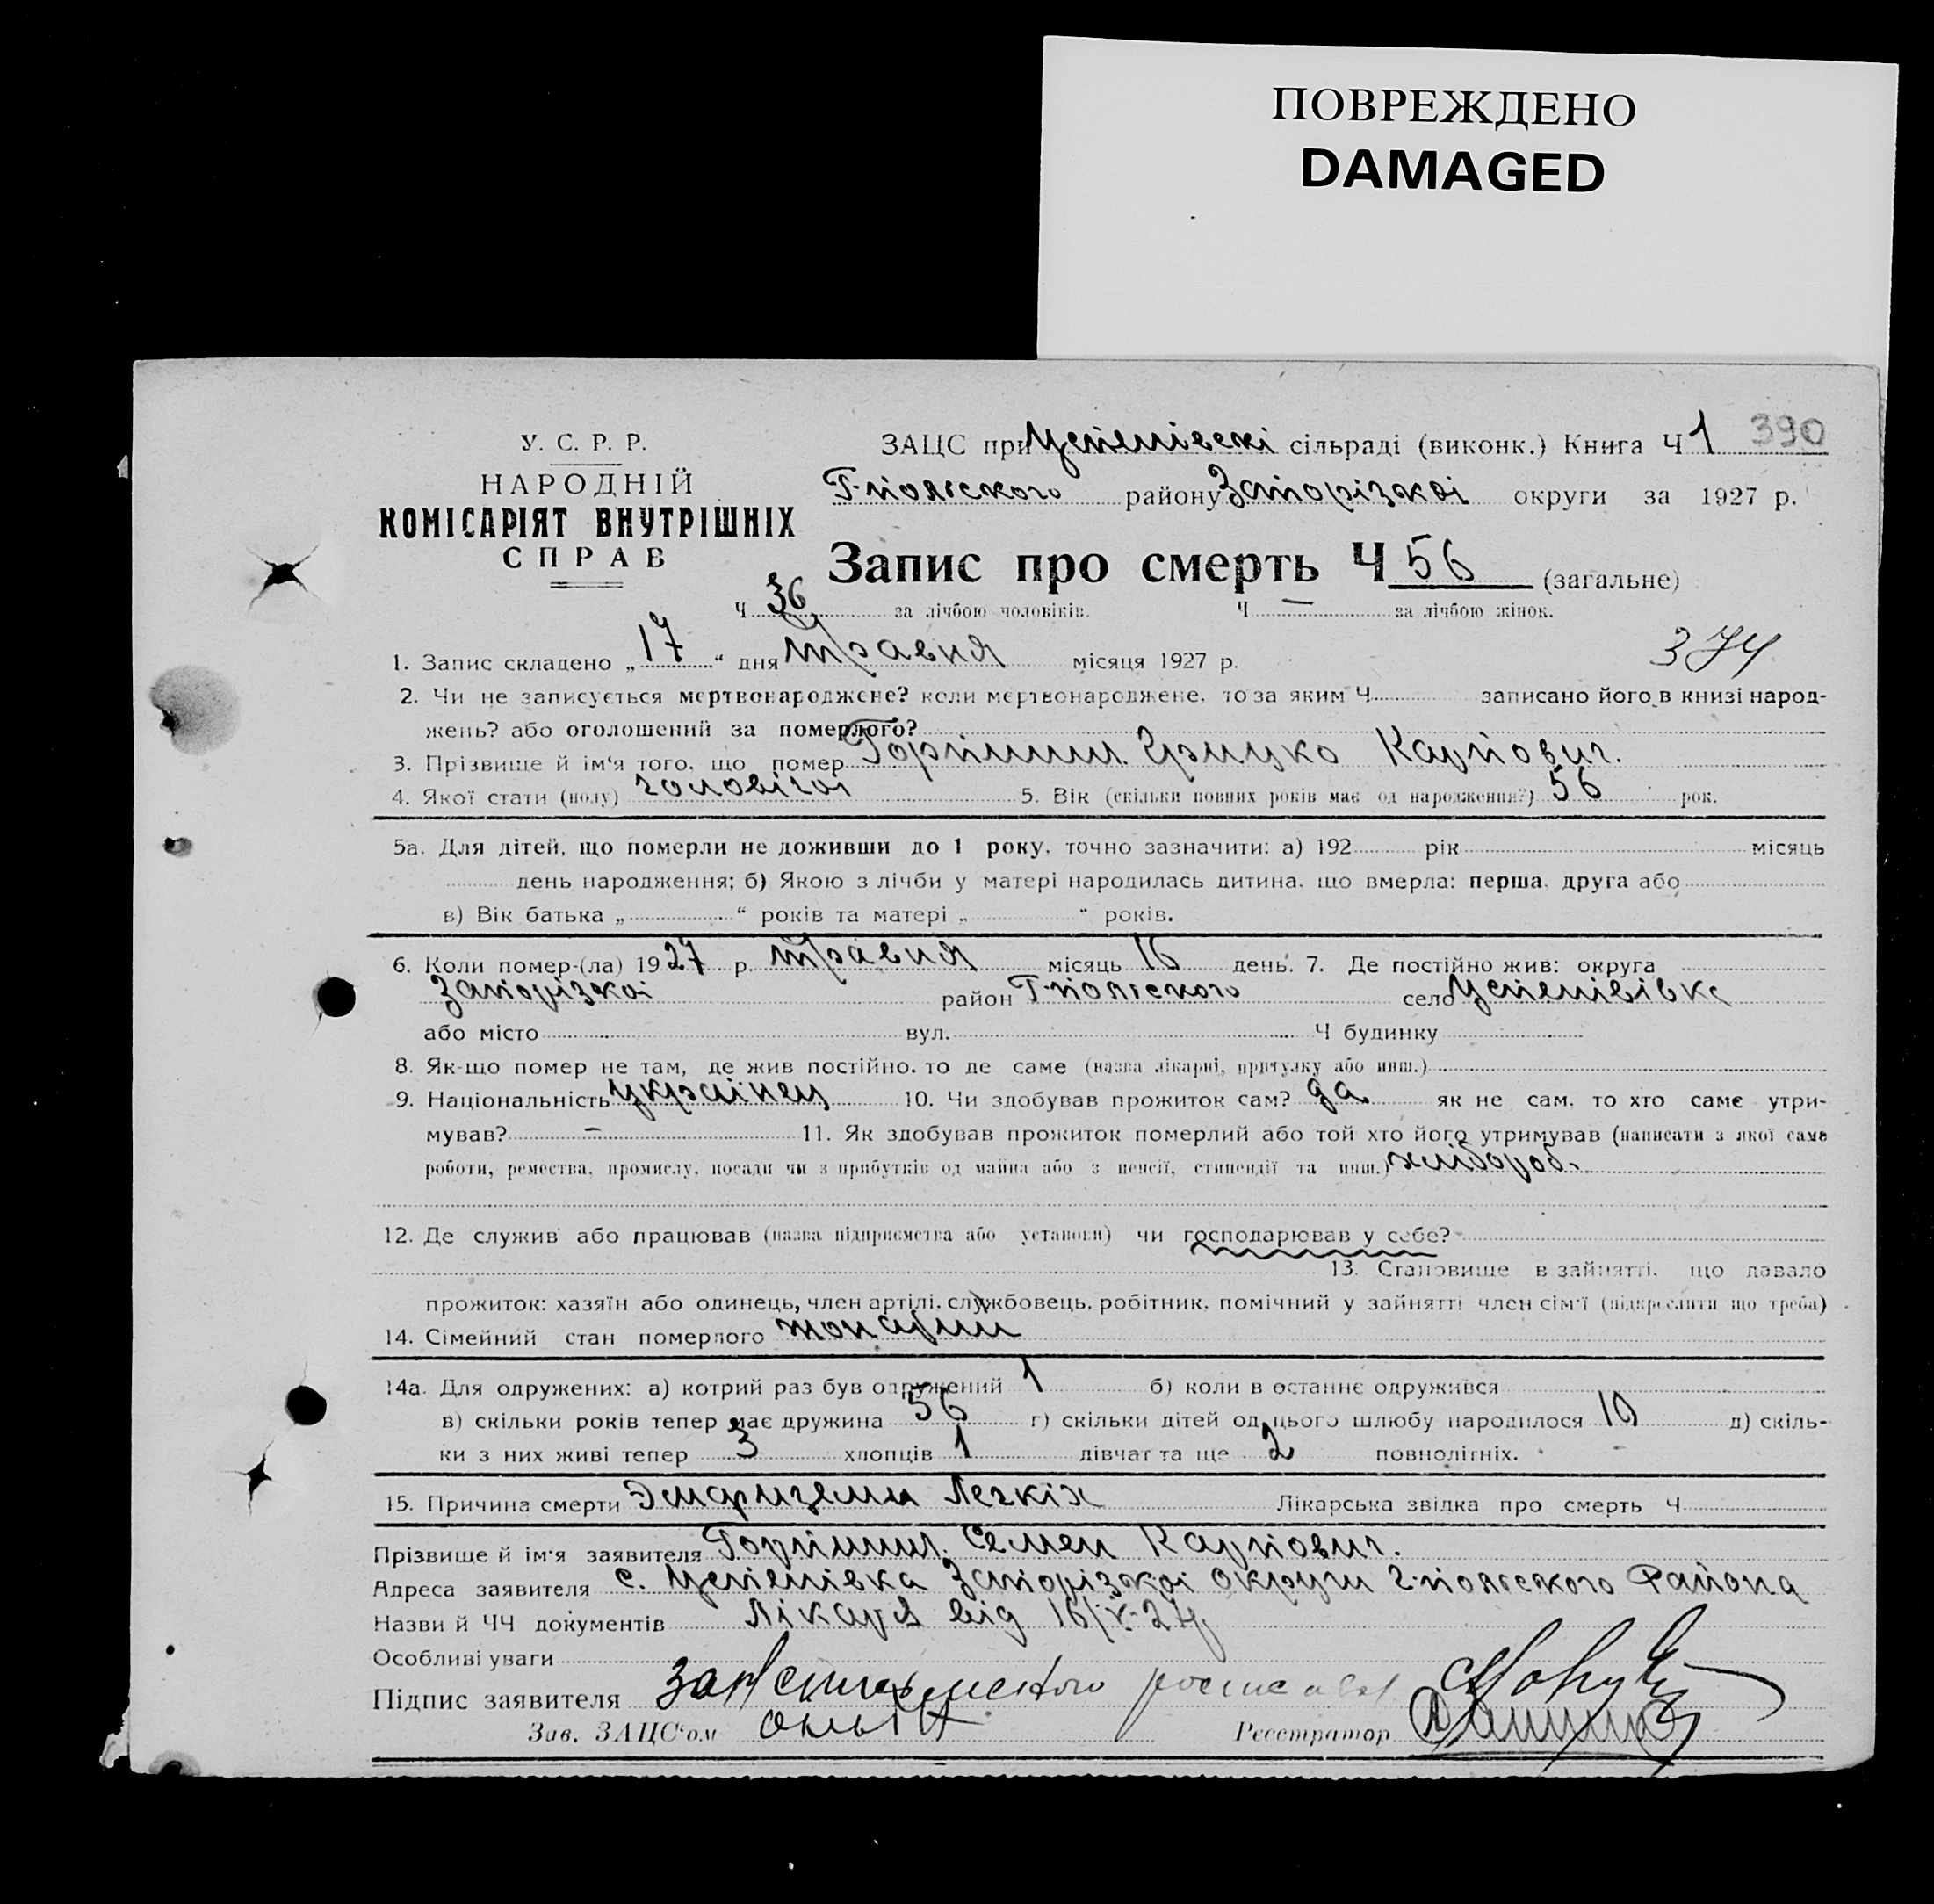 ПОВРЕЖДЕНО
DAMAGED
У. С. Р. Р.
НАРОДНІЙ
КОМІСАРІЯТ ВНУТРІШНІХ
СПРАВ
ЗАЦС при Успенівскі сільраді (виконк.) Книга Ч 1 390
Г-польского району Запорізкоі округи за 1927 р.
Запис про смерть Ч 56 (загальне)
Ч 36 за лічбою чоловіків. Ч — за лічбою жінок.
1. Запис складено „ 17 “ дня травня місяця 1927 р.
374
2. Чи не записується мертвонароджене? коли мертвонароджене, то за яким Ч записано його в книзі народ-
жень? або оголошений за померлого?
3. Прізвище й ім‘я того, що помер Грицко Карпович.
4. Якої стати (полу) чоловічоі 5. Вік (скільки повних років має од народження?) 56 рок.
5а. Для дітей, що померли не доживши до 1 року, точно зазначити: а) 192 рік місяць
день народження; б) Якою з лічби у матері народилась дитина, що вмерла: перша, друга або
в) Вік батька „ “ років та матері „ “ років.
6. Коли помер-(ла) 1927 р. травня місяць 16 день. 7. Де постійно жив: округа
Запорізкоі район Г-польского село
або місто вул. Ч будинку
8. Як-що помер не там, де жив постійно, то де саме (назва лікарні, притулку або инш.)
9. Національність украінец 10. Чи здобував прожиток сам? да як не сам, то хто саме утри-
мував? — 11. Як здобував прожиток померлий або той хто його утримував (написати з якої саме
роботи, ремества, промислу, посади чи з прибутків од майна або з пенсії, стипендії та инш.) хлібороб.
12. Де служив або працював (назва підприємства або установи) чи господарював у себе?
13. Становище в зайнятті, що давало
прожиток: хазяїн або одинець, член артілі, службовець, робітник, помічний у зайнятті член сім‘ї (підкреслити що треба)
14. Сімейний стан померлого
14а. Для одружених: а) котрий раз був одружений 1 б) коли в останнє одружився
в) скільки років тепер має дружина 56 г) скільки дітей од цього шлюбу народилося 10 д) скіль-
ки з них живі тепер 3 хлопців 1 дівчат та ще 2 повнолітніх.
15. Причина смерти Легкіх Лікарська звідка про смерть Ч
Прізвище й ім‘я заявителя Семен Карпович.
Адреса заявителя с. Успенівка Запорізкоі округи Г-польского Района
Назви й ЧЧ документів Лікаря від 16/V-27р
Особливі уваги
Підпис заявителя
Зав. ЗАЦС‘ом Реєстратор